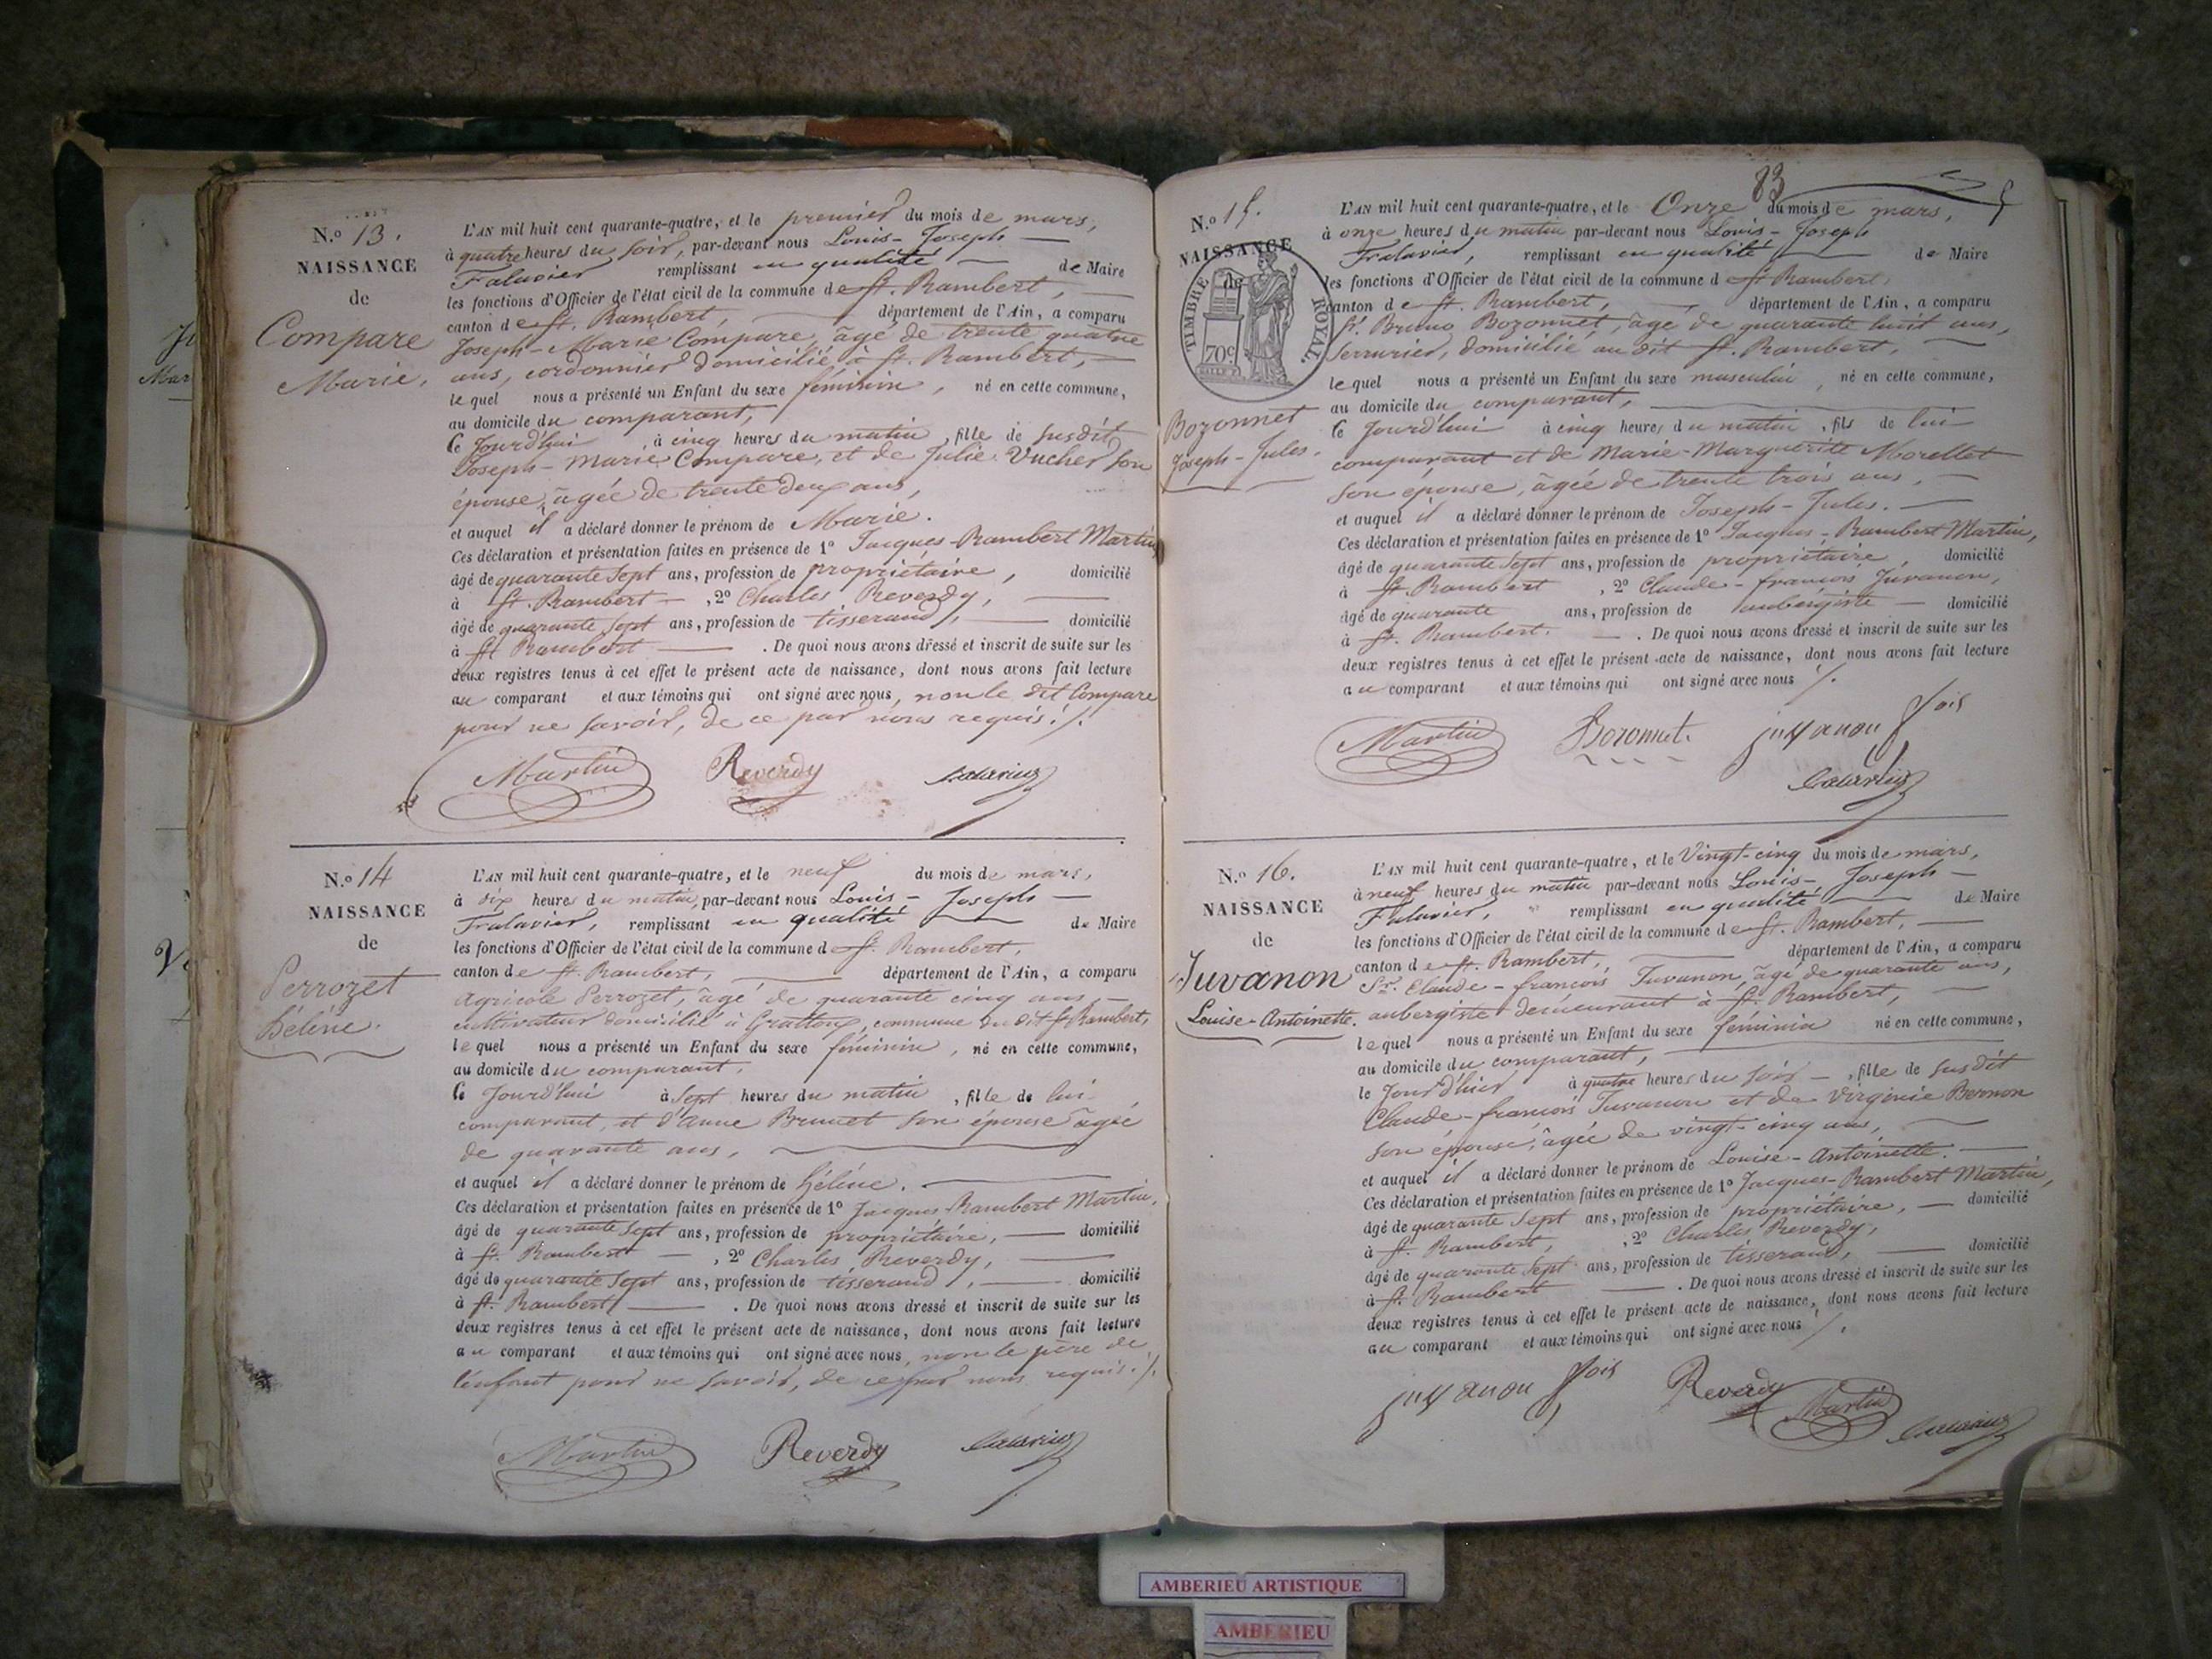 N.o 13.
NAISSANCE
de
Compare
Marie.
L'AN mil huit cent quarante-quatre, et le premier du mois de mars,
à quatre heures du soir, par-devant nous Louis-Joseph
Falavier remplissant en qualité de Maire
les fonctions d'Officier de l'état civil de la commune de St. Rambert,
canton de St. Rambert, département de l'Ain, a comparu
Joseph-Marie Compare, âgé de trente quatre
ans, cordonnier domicilié à St. Rambert,
lequel nous a présenté un Enfant du sexe féminin, né en cette commune,
au domicile du comparant,
Ce Jourd'hui, à cinq heures du matin, fille de susdit
Joseph-Marie Compare, et de Julie Vucher son
épouse, âgée de trente deux ans,
et auquel il a déclaré donner le prénom de Marie.
Ces déclaration et présentation faites en présence de 1o Jacques-Rambert Martin,
âgé de quarante sept ans, profession de propriétaire, domicilié
à St. Rambert, 2o Charles Reverdy,
âgé de quarante sept ans, profession de tisserand, domicilié
à St Rambert. De quoi nous avons dressé et inscrit de suite sur les
deux registres tenus à cet effet le présent acte de naissance, dont nous avons fait lecture
au comparant et aux témoins qui ont signé avec nous, non le dit Compare
pour ne savoir, de ce par nous requis ./.
Martin Reverdy Falavier
N.o 14
NAISSANCE
de
Perrozet
héléne.
L'AN mil huit cent quarante-quatre, et le neuf du mois de mars,
à dix heures du matin, par-devant nous Louis-Joseph
Falavier, remplissant en qualité de Maire
les fonctions d'Officier de l'état civil de la commune de St. Rambert,
canton de St. Rambert, département de l'Ain, a comparu
Agricole Perrozet, âgé de quarante cinq ans,
cultivateur domicilié à Grattoux, commune du dit St Rambert,
lequel nous a présenté un Enfant du sexe féminin, né en cette commune,
au domicile du comparant,
Ce Jourd'hui à sept heures du matin, fille de lui
comparant, et d'Anne Brunet son épouse âgée
de quarante ans,
et auquel il a déclaré donner le prénom de héléne.
Ces déclaration et présentation faites en présence de 1o Jacques Rambert Martin,
âgé de quarante sept ans, profession de propriétaire, domicilié
à St. Rambert, 2o Charles Reverdy,
âgé de quarante sept ans, profession de tisserand, domicilié
à St. Rambert. De quoi nous avons dressé et inscrit de suite sur les
deux registres tenus à cet effet le présent acte de naissance, dont nous avons fait lecture
au comparant et aux témoins qui ont signé avec nous, non le père de
l'enfant pour ne savoir, de ce par nous requis ./.
Martin Reverdy Falavier
83
N.o 15.
NAISSANCE
de
TIMBRE ROYAL.
70c
Bozonnet
Joseph-Jules.
L'AN mil huit cent quarante-quatre, et le Onze du mois de mars,
à onze heures du matin par-devant nous Louis-Joseph
Falavier, remplissant en qualité de Maire
les fonctions d'Officier de l'état civil de la commune de St Rambert,
canton de St. Rambert, département de l'Ain, a comparu
Sr. Bruno Bozonnet, âgé de quarante huit ans,
serrurier, domicilié au dit St. Rambert,
lequel nous a présenté un Enfant du sexe masculin, né en cette commune,
au domicile du comparant,
Ce Jourd'hui à cinq heures du matin, fils de lui
comparant et de Marie-Marguerite Morellet
son épouse, âgée de trente trois ans,
et auquel il a déclaré donner le prénom de Joseph-Jules.
Ces déclaration et présentation faites en présence de 1o Jacques-Rambert Martin,
âgé de quarante sept ans, profession de propriétaire, domicilié
à St. Rambert, 2o Claude-françois Juvanon,
âgé de quarante ans, profession de aubergiste domicilié
à St. Rambert. De quoi nous avons dressé et inscrit de suite sur les
deux registres tenus à cet effet le présent acte de naissance, dont nous avons fait lecture
au comparant et aux témoins qui ont signé avec nous ./.
Martin Bozonnet. juvanon fois
Falavier
N.o 16.
NAISSANCE
de
Juvanon
Louise-Antoinette.
L'AN mil huit cent quarante-quatre, et le Vingt-cinq du mois de mars,
à neuf heures du matin par-devant nous Louis-Joseph
Falavier, remplissant en qualité de Maire
les fonctions d'Officier de l'état civil de la commune de St. Rambert,
canton de St. Rambert, département de l'Ain, a comparu
Sr. Claude-françois Juvanon, âgé de quarante ans,
aubergiste demeurant à St. Rambert,
lequel nous a présenté un Enfant du sexe féminin né en cette commune,
au domicile du comparant,
le Jour d'hier à quatre heures du soir, fille de susdit
Claude-françois Juvanon et de Virginie Bernon
son épouse, âgée de vingt-cinq ans,
et auquel il a déclaré donner le prénom de Louise-Antoinette.
Ces déclaration et présentation faites en présence de 1o Jacques-Rambert Martin,
âgé de quarante sept ans, profession de propriétaire, domicilié
à St. Rambert, 2o Charles Reverdy,
âgé de quarante sept ans, profession de tisserand, domicilié
à St. Rambert. De quoi nous avons dressé et inscrit de suite sur les
deux registres tenus à cet effet le présent acte de naissance, dont nous avons fait lecture
au comparant et aux témoins qui ont signé avec nous ./.
juvanon fois Reverdy Martin Falavier
AMBERIEU ARTISTIQUE
AMBERIEU